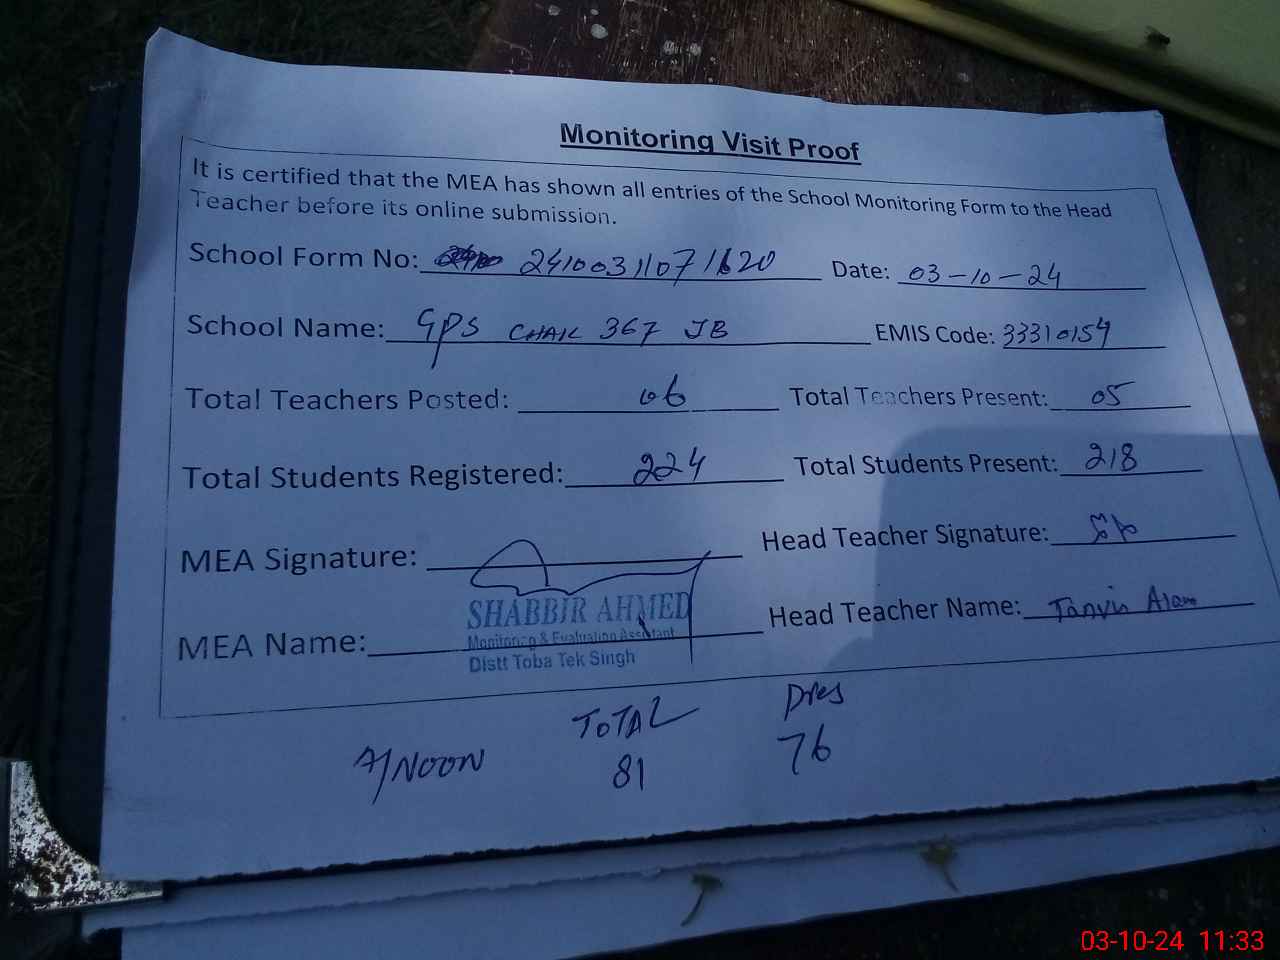 Monitoring Visit Proof
It is certified that the MEA has shown all entries of the School Monitoring Form to the Head
Teacher before its online submission.
School Form No: 24100311071620 Date: 03-10-24
School Name: GPS CHAK 367 JB EMIS Code: 33310154
Total Teachers Posted: 06 Total Teachers Present: 05
Total Students Registered: 224 Total Students Present: 218
MEA Signature: Head Teacher Signature:
SHABBIR AHMED
MEA Name: Monitoring & Evaluation Assistant Head Teacher Name: Tanvir Alam
Distt Toba Tek Singh
TOTAL Pres
A/NOON 81 76
03-10-24 11:33